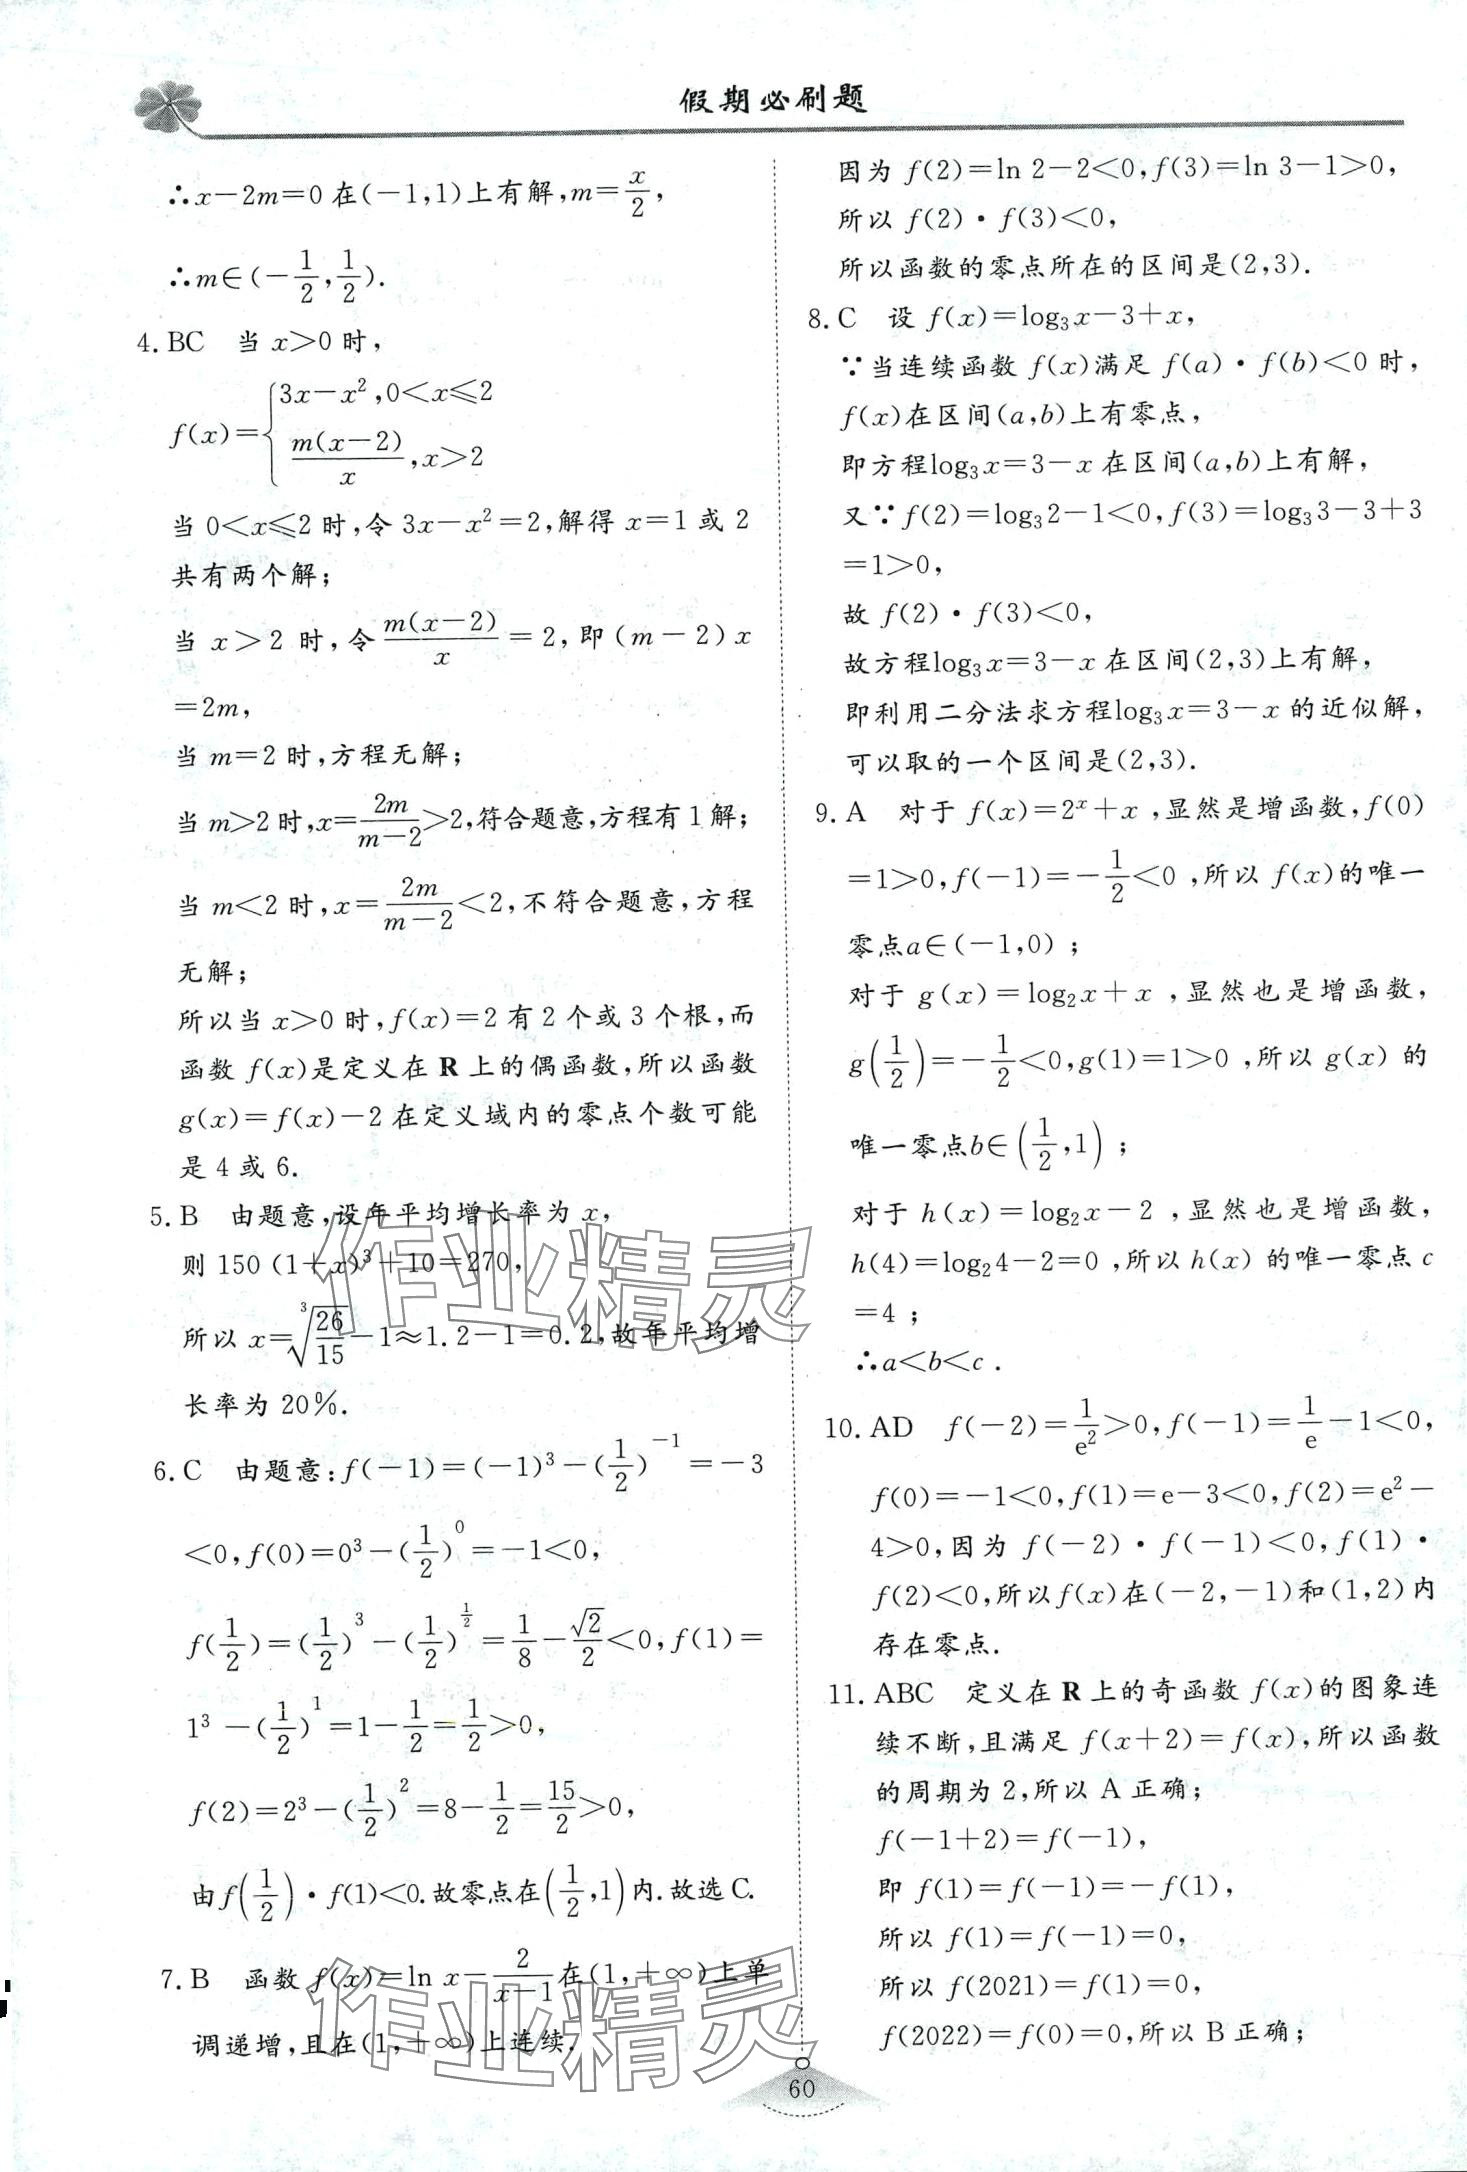 假期必刷题
∴x－2m＝0 在(－1,1)上有解,m＝x/2,
∴m∈(－1/2,1/2).
4. BC 当 x＞0 时,
f(x)＝{3x－x²,0＜x⩽2
m(x－2)/x,x＞2
当 0＜x⩽2 时,令 3x－x²＝2,解得 x＝1 或 2
共有两个解;
当 x＞2 时,令 m(x－2)/x＝2,即(m－2)x
＝2m,
当 m＝2 时,方程无解;
当 m＞2 时,x＝2m/(m－2)＞2,符合题意,方程有 1 解;
当 m＜2 时,x＝2m/(m－2)＜2,不符合题意,方程
无解;
所以当 x＞0 时,f(x)＝2 有 2 个或 3 个根,而
函数 f(x)是定义在 R 上的偶函数,所以函数
g(x)＝f(x)－2 在定义域内的零点个数可能
是 4 或 6.
5. B 由题意,设年平均增长率为 x,
则 150 (1＋x)³＋10＝270,
所以 x＝∛(26/15)－1≈1.2－1＝0.2,故年平均增
长率为 20%.
6. C 由题意:f(－1)＝(－1)³－(1/2)⁻¹＝－3
＜0,f(0)＝0³－(1/2)⁰＝－1＜0,
f(1/2)＝(1/2)³－(1/2)^(1/2)＝1/8－√2/2＜0,f(1)＝
1³－(1/2)¹＝1－1/2＝1/2＞0,
f(2)＝2³－(1/2)²＝8－1/2＝15/2＞0,
由f(1/2)·f(1)＜0.故零点在(1/2,1)内.故选 C.
7. B 函数 f(x)＝ln x－2/(x－1)在(1,＋∞)上单
调递增,且在(1,＋∞)上连续.
因为 f(2)＝ln 2－2＜0,f(3)＝ln 3－1＞0,
所以 f(2)·f(3)＜0,
所以函数的零点所在的区间是(2,3).
8. C 设 f(x)＝log₃x－3＋x,
∵当连续函数 f(x)满足 f(a)·f(b)＜0 时,
f(x)在区间(a,b)上有零点,
即方程log₃x＝3－x 在区间(a,b)上有解,
又∵f(2)＝log₃2－1＜0,f(3)＝log₃3－3＋3
＝1＞0,
故 f(2)·f(3)＜0,
故方程log₃x＝3－x 在区间(2,3)上有解,
即利用二分法求方程log₃x＝3－x 的近似解,
可以取的一个区间是(2,3).
9. A 对于 f(x)＝2ˣ＋x ,显然是增函数,f(0)
＝1＞0,f(－1)＝－1/2＜0 ,所以 f(x)的唯一
零点a∈(－1,0) ;
对于 g(x)＝log₂x＋x ,显然也是增函数,
g(1/2)＝－1/2＜0,g(1)＝1＞0 ,所以 g(x) 的
唯一零点b∈(1/2,1) ;
对于 h(x)＝log₂x－2 ,显然也是增函数,
h(4)＝log₂4－2＝0 ,所以 h(x) 的唯一零点 c
＝4 ;
∴a＜b＜c .
10. AD f(－2)＝1/e²＞0,f(－1)＝1/e－1＜0,
f(0)＝－1＜0,f(1)＝e－3＜0,f(2)＝e²－
4＞0,因为 f(－2)·f(－1)＜0,f(1)·
f(2)＜0,所以f(x)在(－2,－1)和(1,2)内
存在零点.
11. ABC 定义在 R 上的奇函数 f(x)的图象连
续不断,且满足 f(x＋2)＝f(x),所以函数
的周期为 2,所以 A 正确;
f(－1＋2)＝f(－1),
即 f(1)＝f(－1)＝－f(1),
所以 f(1)＝f(－1)＝0,
所以 f(2021)＝f(1)＝0,
f(2022)＝f(0)＝0,所以 B 正确;
60
作业精灵
作业精灵